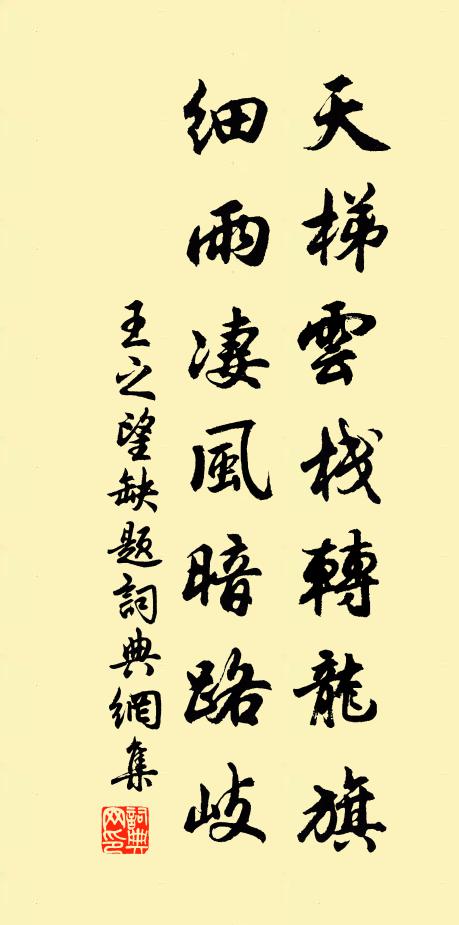 天梯雲棧轉龍旗
細雨凄風暗路岐
王之望缺題詞典網集
詞典網印